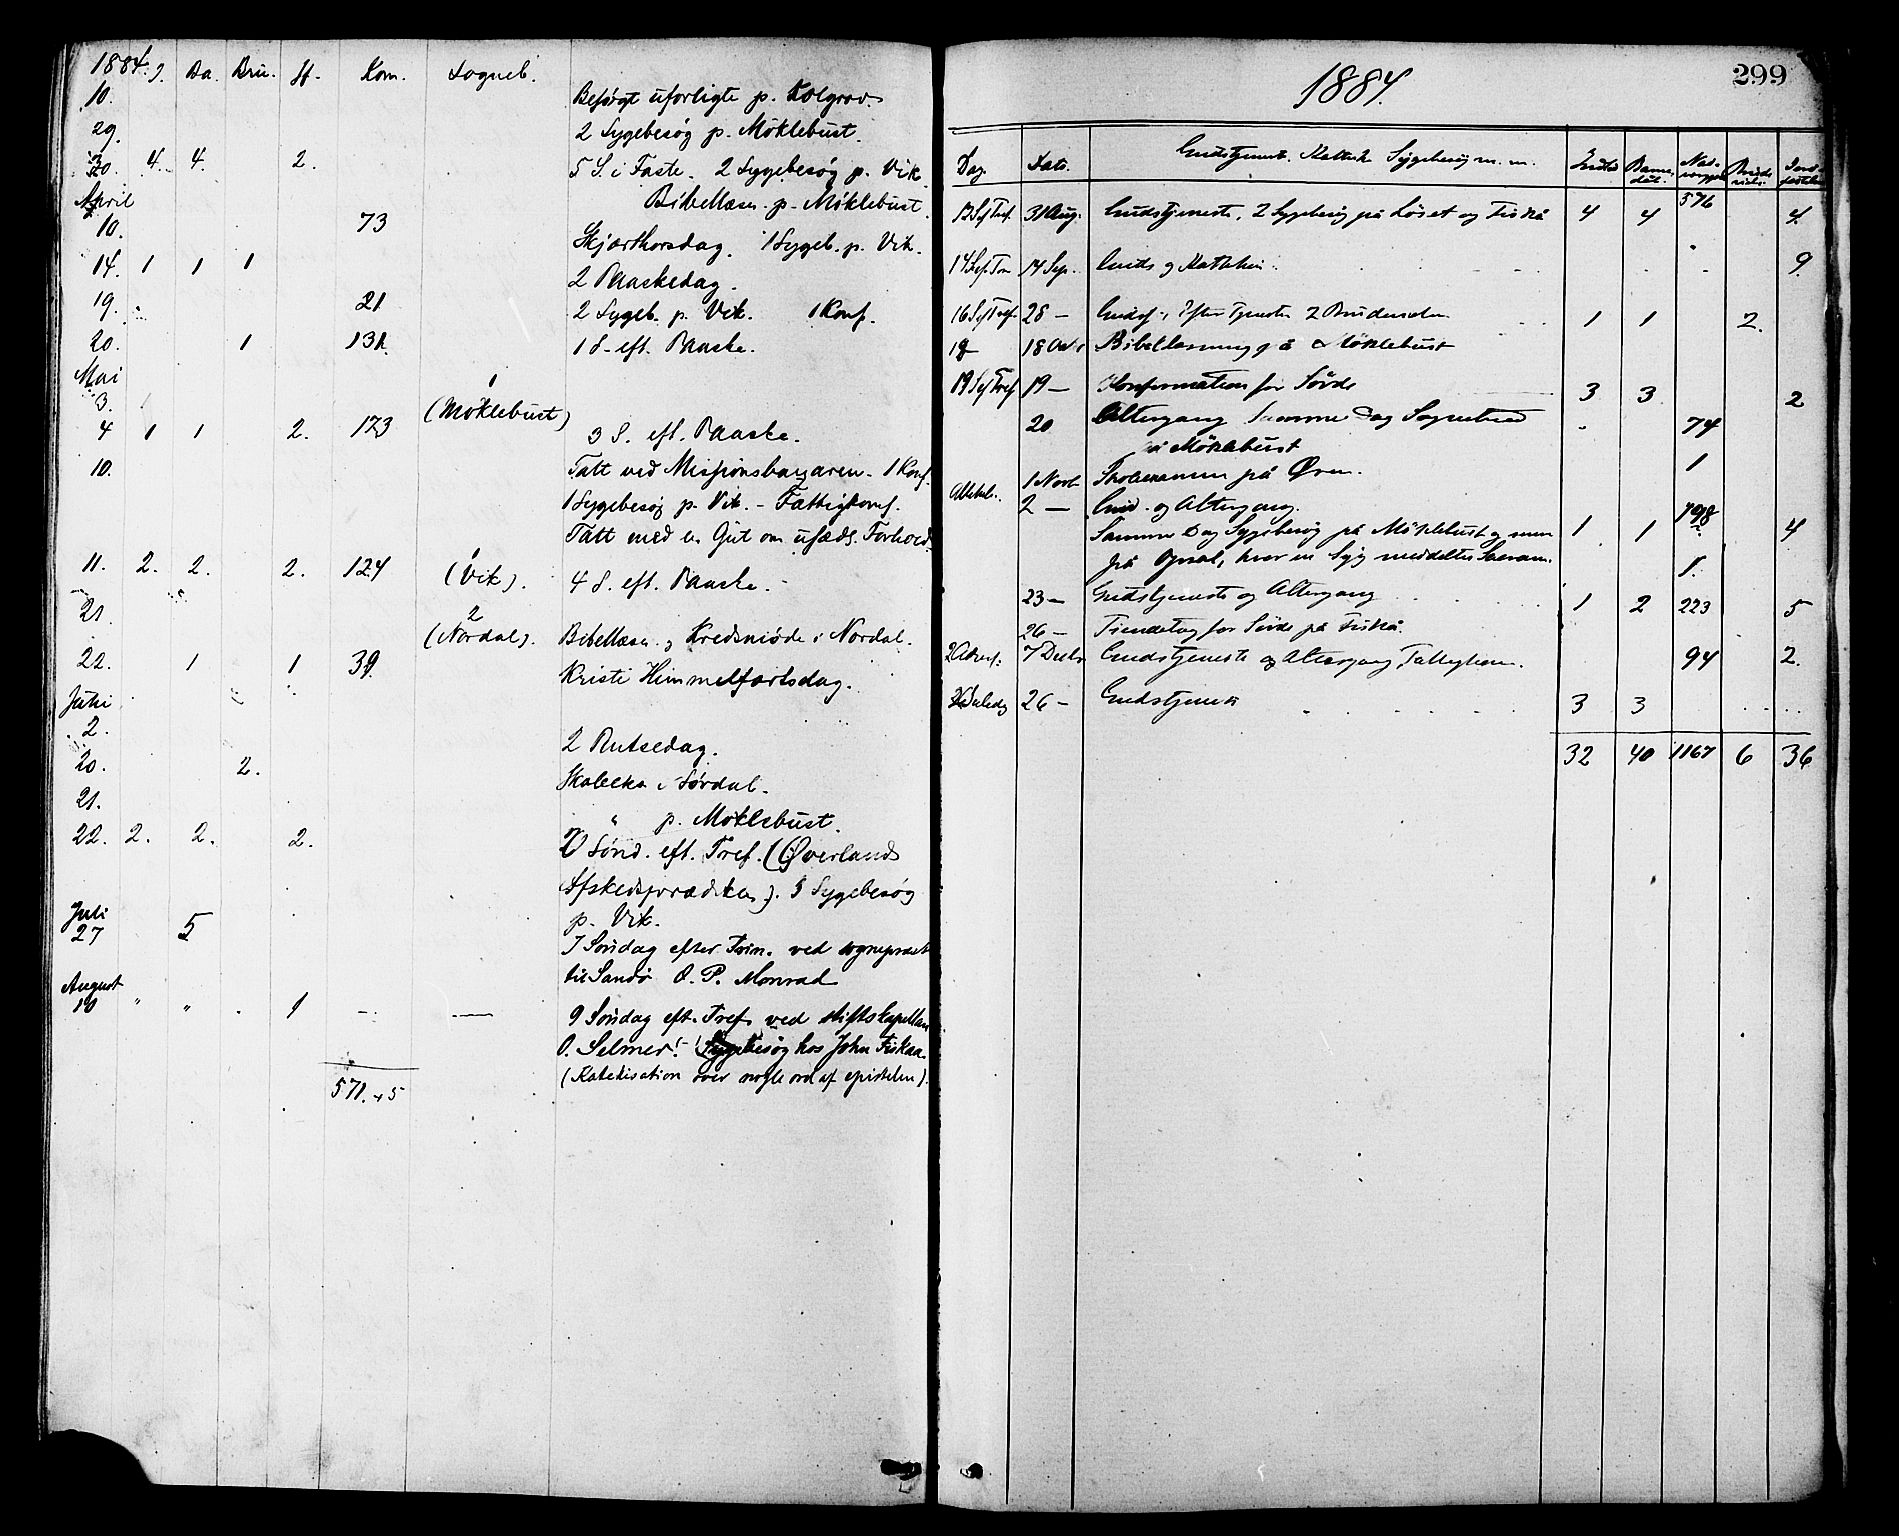 1884. I. Da. Bru. St. Kom. Sogneb.
10. Besøgt uforligte p. Kolgrov.
29. 2 Sygebesøg p. Möklebust.
30. 4. 4. 2. 5 S. i Faste. 2 Sygebesøg p. Vik.
April Bibellæsn. p. Möklebust.
10. 73 Skjærthorsdag. 1 Sygeb. p. Vik.
14. 1 1 1 2 Paaskedag.
19. 21 2 Sygeb. p. Vik. 1 Konf.
20. 1 131. 1 S. eft. Paaske.
Mai
3. 1 (Möklebust)
4 1 1 2. 123 3 S. eft. Paaske.
10. Talt ved Missionsbazaren. 1 Konf.
1 Sygebesøg p. Vik. - Fattigkoms.
Talt med en Gut om usæds. Forhold.
11. 2. 2. 2. 124 1 (Vik). 4 S. eft. Paaske.
21. 2 (Nordal). Bibellæsn. og Kredsmöde i Nordal.
22. 1 1 39. Kristi Himmelfartsdag.
Juni
2. 2 Pintsedag.
20. 2. i Sørdal.
21. " p. Moklebust.
22. 2. 2. 2. 2 Sönd. eft. Tref. (Overlands
Afskedsprædiken). 3 Sygebesøg
p. Vik.
Juli
27 5 7 Søndag efter Trin. ved sognepræst
til Sandö O. P. Monrad
August
10 " " . 1 - — 9 Søndag eft. Tref. ved stiftskapellan
O. Selmer. Sygebesøg hos John Fiskaa.
(Katekisation over nogle ord af epistelen).
571. +5
299
1884.
Dag. Dato. Gudstjeneste. Katek. Sygebesøg m. m. Daab
576
12 S e Tref. 31 Aug. Gudstjeneste, 2 Sygebesøg på Löset og Fiskå 4 4 4.
14 S e Tr 14 Sep. Guds og Katekis. 9
16 S e Tref. 28 - Gudst. Efter Tjenesten 2 Brudevielser 1 1 2.
18 Oct. Bibellæsning på Möklebust
19 S e Tref 19 - Konfirmation for Sørde 3 3 2
20 Altergang Samme Dag Sognebud 74
på Möklebust 1
1 Novb Skoleexamen på Øren.
Allehel. 2 - Gud. og Altergang. 198
Samme Dag Sygebesøg på Möklebust og en 1 1 4
på Opsal, hvor en Syg meddeltes Sacram. 1.
23 - Gudstjeneste og Altergang 1 2 223 5
26 - Tiendetag for Sörde på Fiskå.
2 Advent. 7 Decbr Gudstjeneste og Altergang, 94 2.
2 Juledag 26 - Gudstjeneste 3 3
32 40 1167 6 36